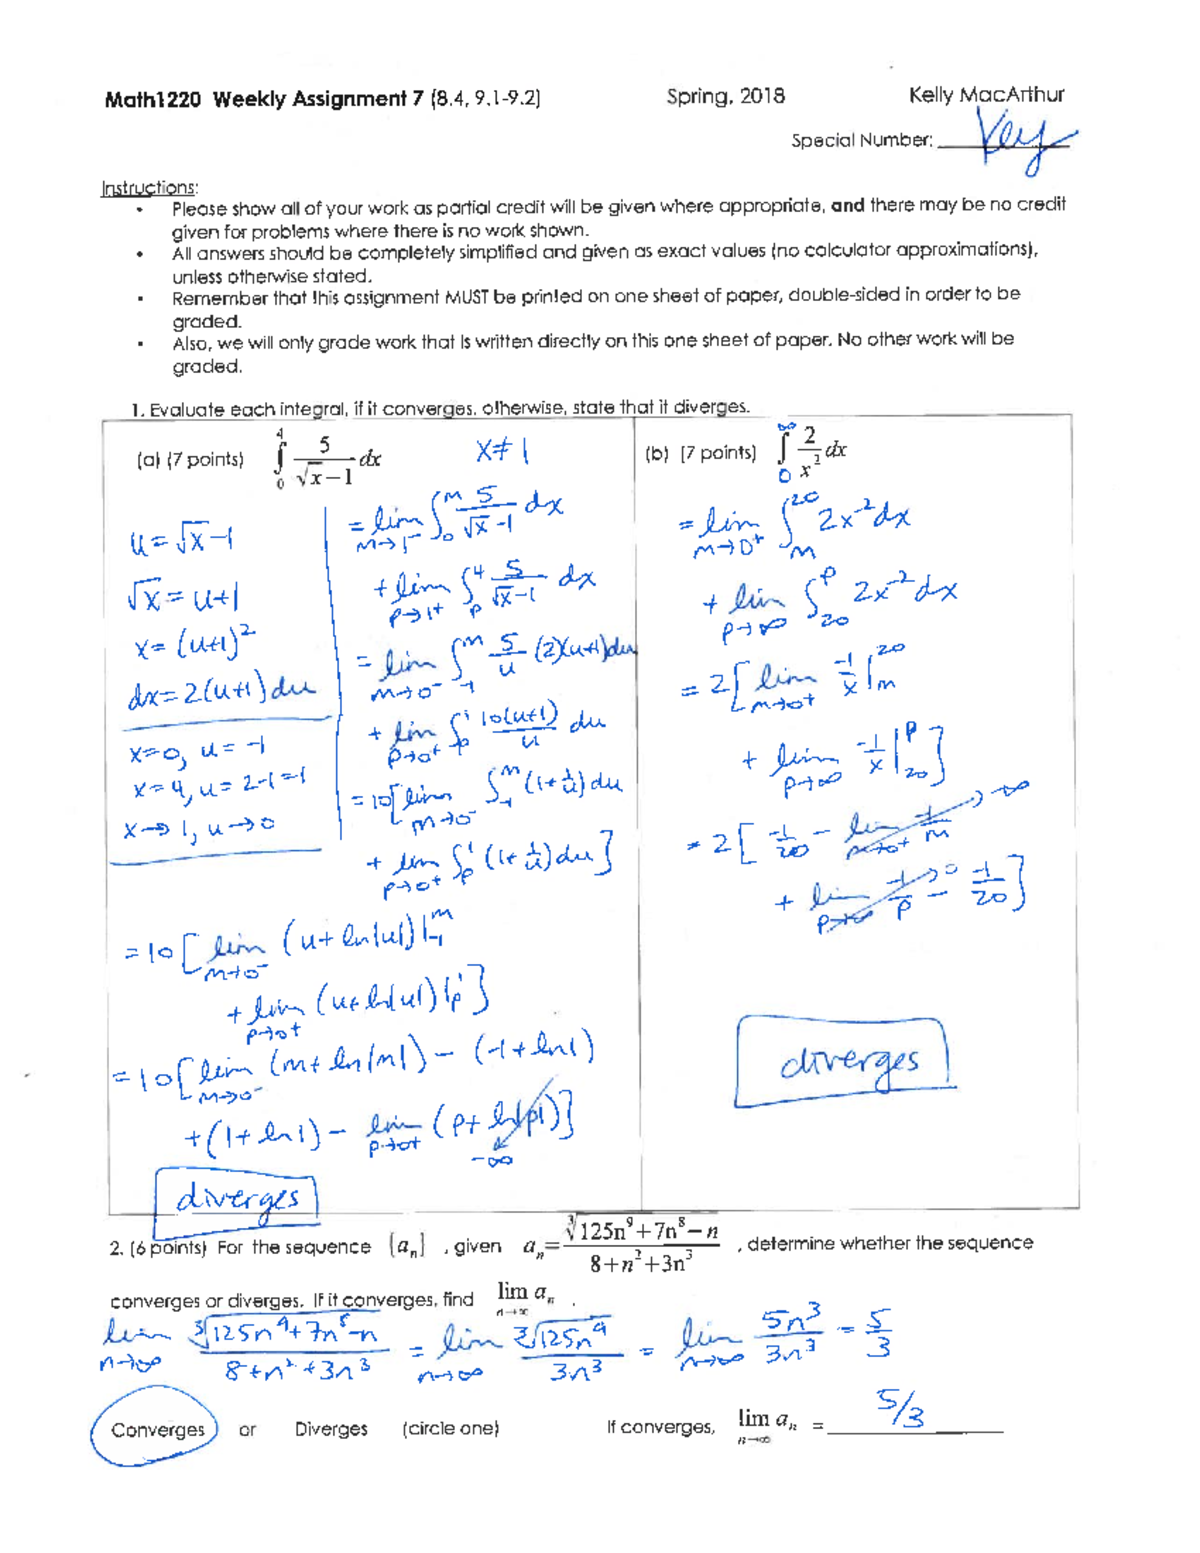 Math1220 Weekly Assignment 7 (8.4, 9.1-9.2) Spring, 2018 Kelly MacArthur
Special Number: Key
Instructions:
• Please show all of your work as partial credit will be given where appropriate, and there may be no credit
given for problems where there is no work shown.
• All answers should be completely simplified and given as exact values (no calculator approximations),
unless otherwise stated.
• Remember that this assignment MUST be printed on one sheet of paper, double-sided in order to be
graded.
• Also, we will only grade work that is written directly on this one sheet of paper. No other work will be
graded.
1. Evaluate each integral, if it converges, otherwise, state that it diverges.
(a) (7 points) ∫_0^4 5/(√x−1) dx x≠1
u=√x−1
√x=u+1
x=(u+1)^2
dx=2(u+1)du
x=0, u=-1
x=4, u=2-1=1
x→1, u→0
= lim_{m→1^-} ∫_0^m 5/(√x−1) dx
+ lim_{p→1^+} ∫_p^4 5/(√x−1) dx
= lim_{m→0^-} ∫_{-1}^m 5/u (2)(u+1)du
+ lim_{p→0^+} ∫_p^1 10(u+1)/u du
=10[lim_{m→0^-} ∫_{-1}^m (1+1/u)du
+ lim_{p→0^+} ∫_p^1 (1+1/u)du]
=10[lim_{m→0^-} (u+ln|u|)|_{-1}^m
+ lim_{p→0^+} (u+ln|u|)|_p^1]
=10[lim_{m→0^-} (m+ln|m|) − (-1+ln1)
+(1+ln1) − lim_{p→0^+} (p+ln|p|)]
-∞
diverges
(b) (7 points) ∫_0^∞ 2/x^2 dx
= lim_{m→0^+} ∫_m^20 2x^-2 dx
+ lim_{p→∞} ∫_20^p 2x^-2 dx
= 2[lim_{m→0^+} -1/x|_m^20
+ lim_{p→∞} -1/x|_20^p]
= 2[-1/20 − lim_{m→0^+} -1/m → -∞
+ lim_{p→∞} -1/p → 0 − -1/20]
diverges
2. (6 points) For the sequence {a_n} , given a_n= ∛(125n^9+7n^8−n)/(8+n^2+3n^3) , determine whether the sequence
converges or diverges. If it converges, find lim_{n→∞} a_n .
lim_{n→∞} ∛(125n^9+7n^8−n)/(8+n^2+3n^3) = lim_{n→∞} ∛(125n^9)/(3n^3) = lim_{n→∞} 5n^3/3n^3 = 5/3
Converges or Diverges (circle one) If converges, lim_{n→∞} a_n = 5/3